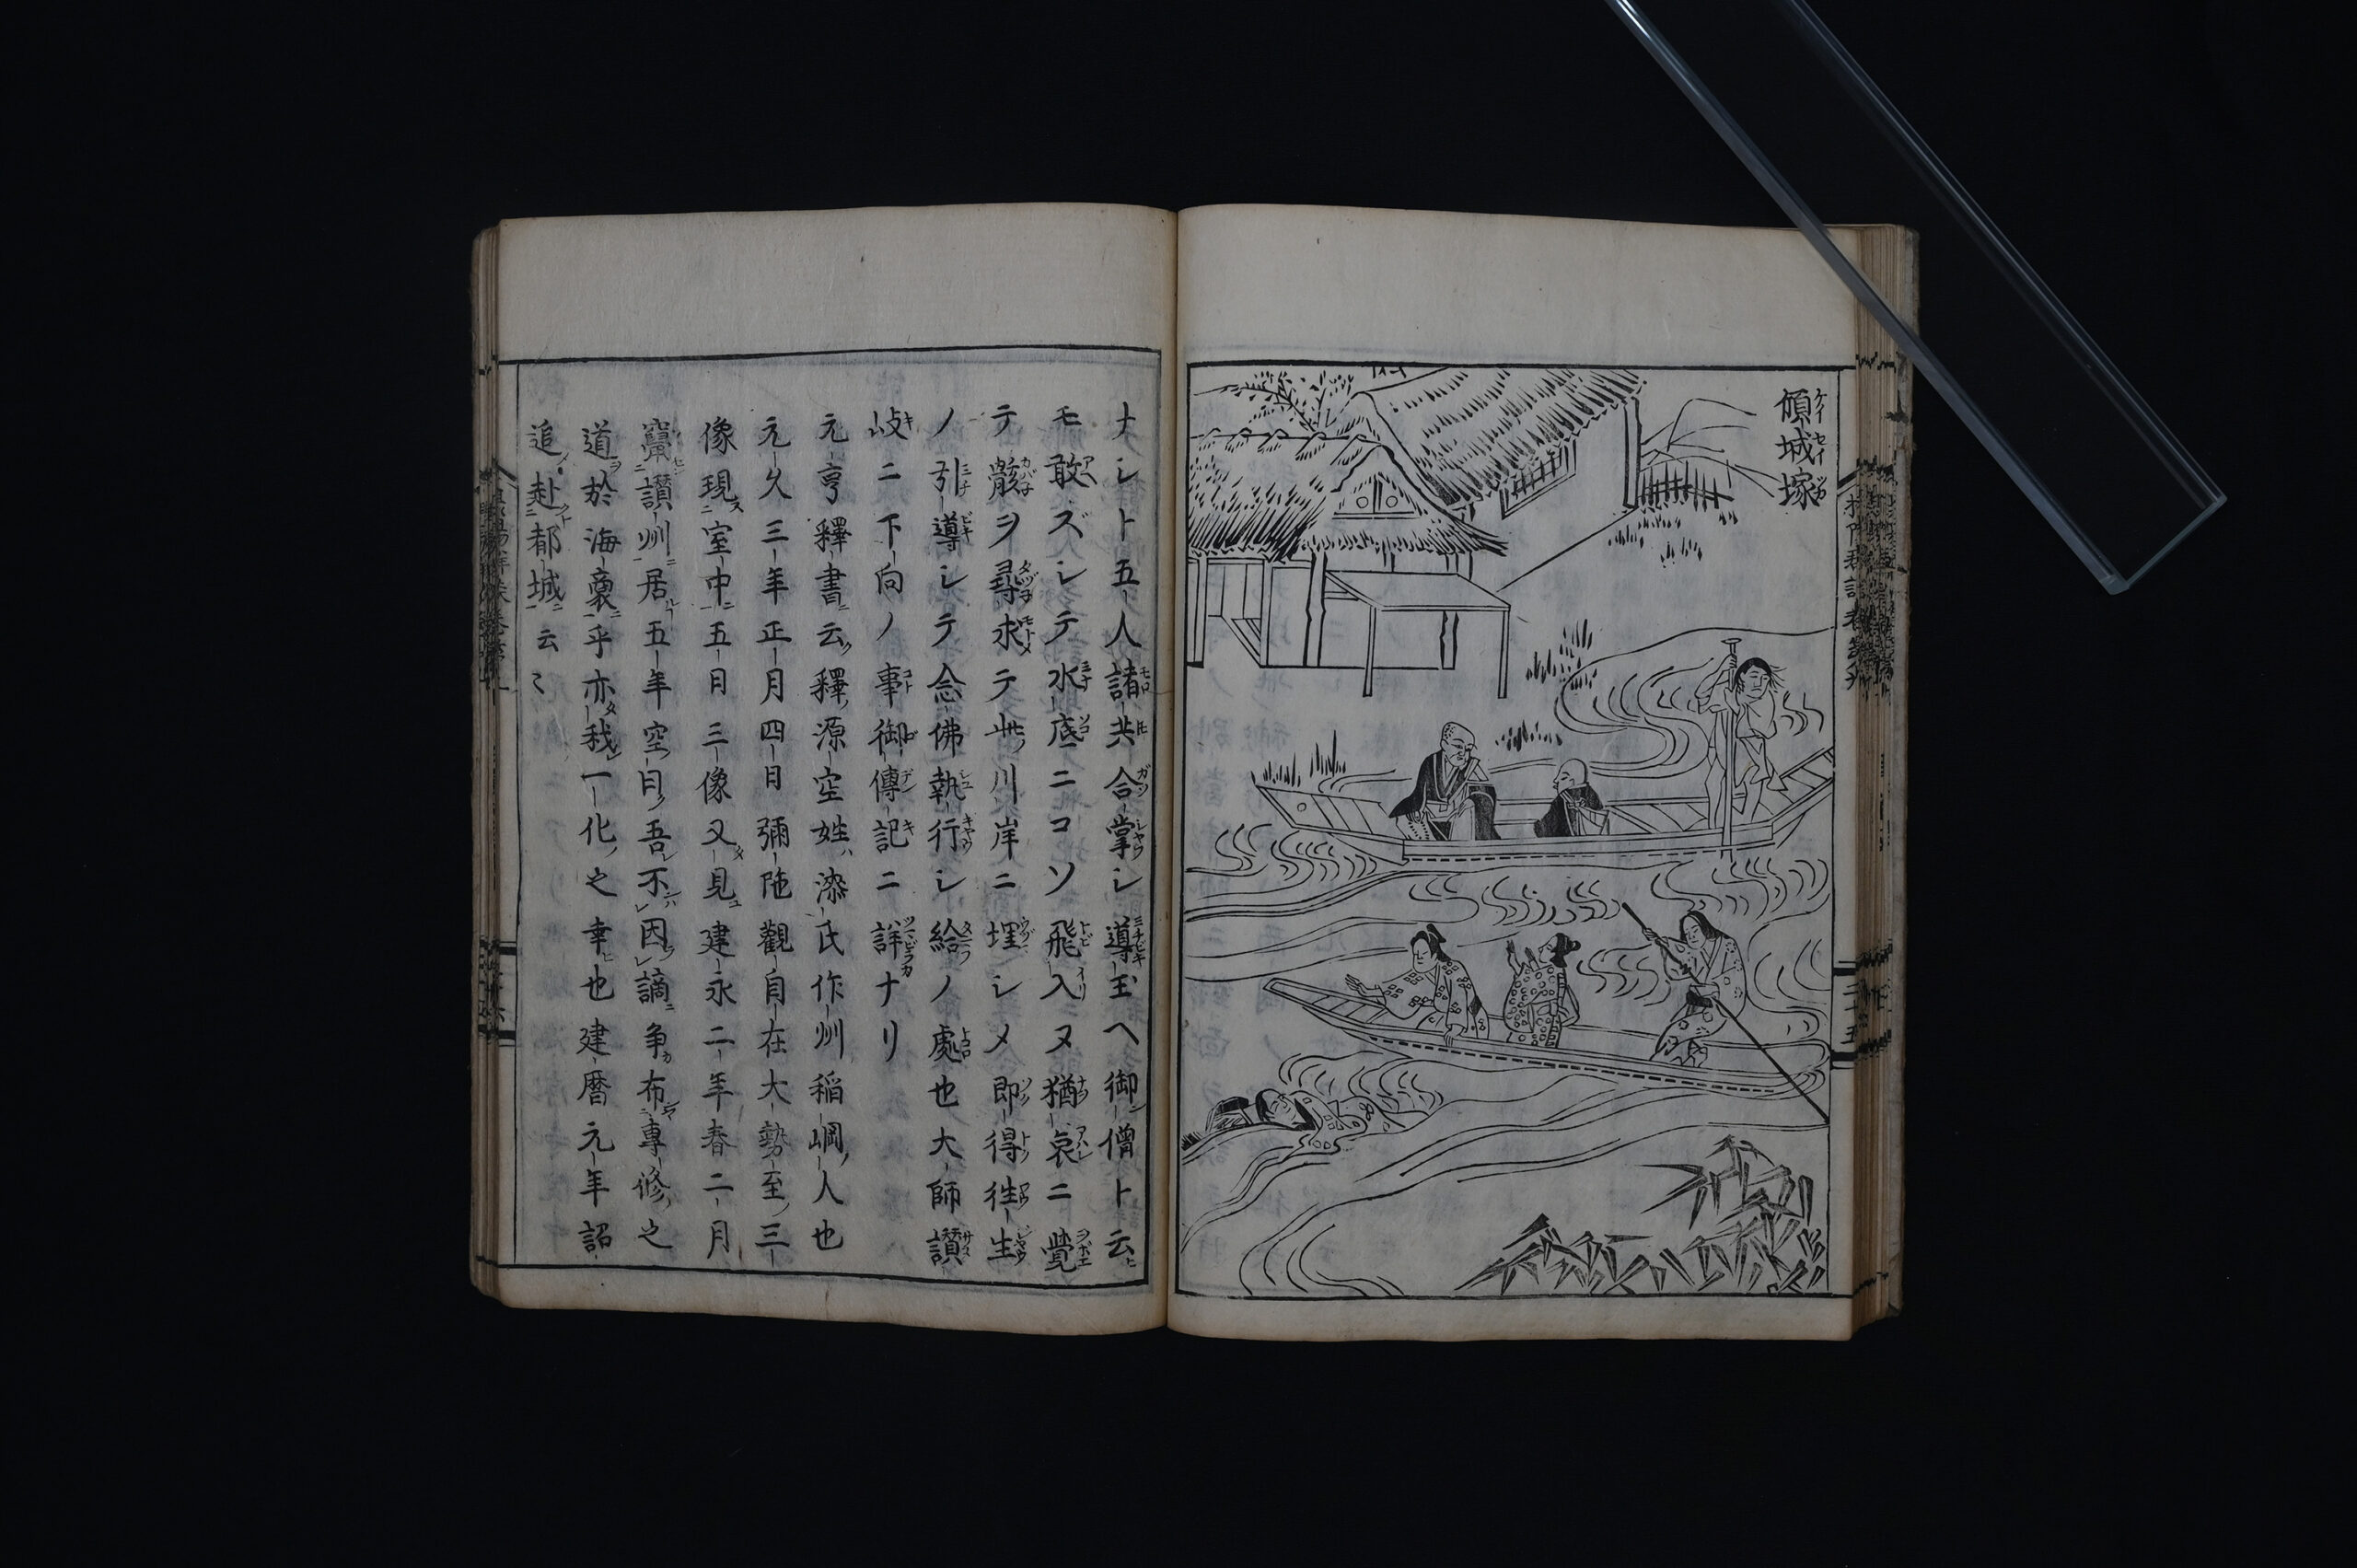 傾城塚
ケイセイヅカ
ナシト五人諸共合掌シ導玉ヘ御僧ト云
モ敢ズシテ水底ニコソ飛入ヌ猶哀ニ覺
テ骸ヲ尋求テ此川岸ニ埋シメ即得徃生
ノ引導シテ念佛執行シ給ノ處也大師讃
岐ニ下向ノ事御傳記ニ詳ナリ
元亨釋書云釋源空姓漆氏作州稲岡人也
元久三年正月四日彌陁觀自在大勢至三
像現室中五日三像又見建永二年春二月
竄讃州居五年空曰吾不因謫争布專修之
道於海裔乎亦我一化之幸也建暦元年詔
追赴都城云〻